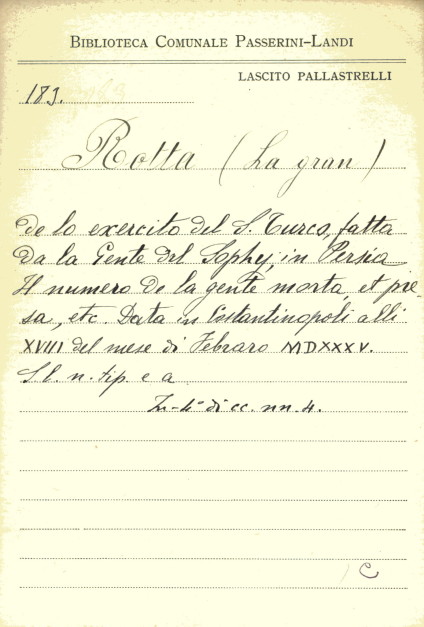 BIBLIOTECA COMUNALE PASSERINI-LANDI
LASCITO PALLASTRELLI
183.
Rotta (La gran)
de lo exercito del S. Turco, fatta
da la Gente del Sophy, in Persia
Il numero de la gente morta, et pre-
sa, etc. Data in Costantinopoli alli
XVIII del mese di Febraro MDXXXV.
S. l. n. tip. e a
In-4° di cc. nn. 4.
C